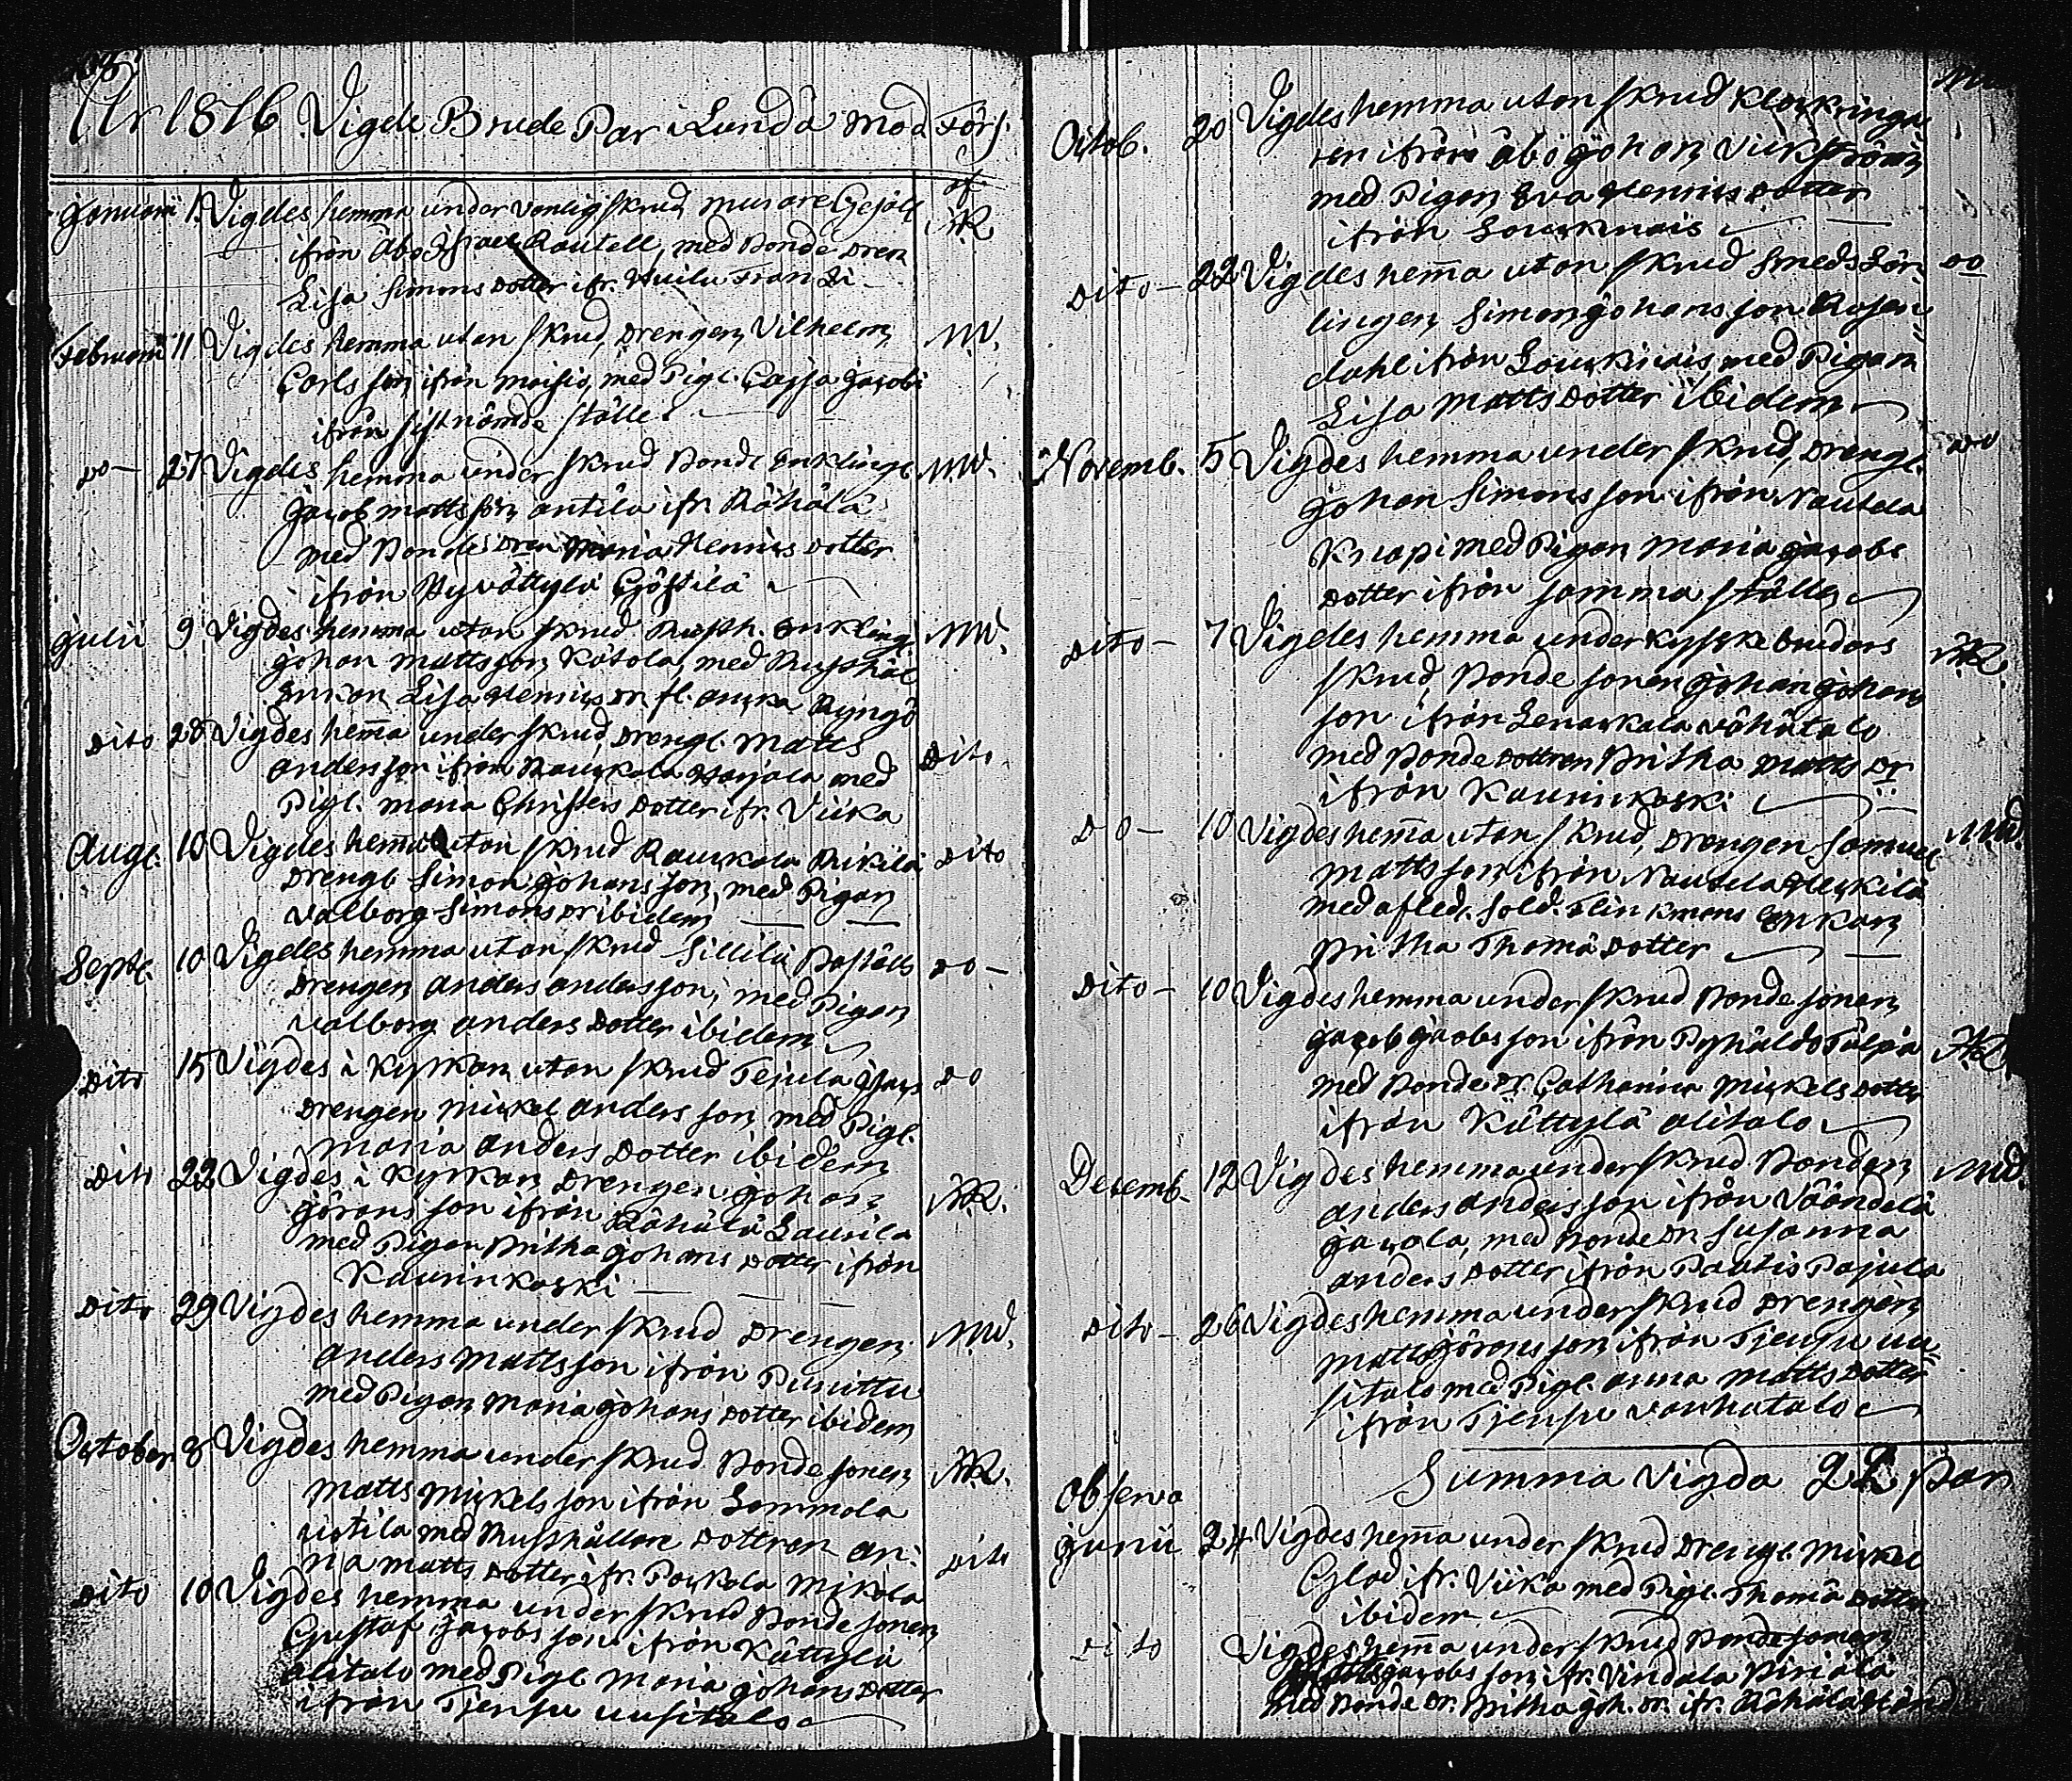 År 1816 Vigde Brude Par i Lundå mod Förs.
af
Januarii 1. Vigdes hemma under vanlig skrud murare Gesäll R
ifrån Åbo Israel Rautell, med Bonde Dren
Lisa Simons Dotter ifr. Huilu Frantzi
Februarii 11 Vigdes hemma utan skrud, Drengen Vilhelm MW.
Carls son ifrån moisio, med Pig. Cajsa Jacobs
ifrån sistnämde ställe
Do 27 Vigdes hemma under skrud Bonde Enklingl MW.
Jacob matts son antila ifr. Råhålå
med Bondes Dren Maria Henrics Dotter
ifrån Hyvättylä Gjöstilä
Julii 9 Vigdes hemma utan skrud Rusth. Enklingl MW.
Johan matts son Kåtola, med Rusthål
Enkan Lisa Henrics Dr fl. Ryngö
Dito 28 Vigdes hem̄a under skrud, Drengl. Matts Dito
anders son ifrån Rauckola Harjola med
Pigl. maria Christers Dotter ifr. Viika
Augl. 10 Vigdes hem̄a utan skrud Rauckola Rikilä Dito
Drengl Simon Johans son, med Pigan
Valborg Simons Dr ibidem
Septl. 10 Vigdes hemma utan skrud Sillilä Boställs Do
Drengen anders anders son, med Pigan
Valborg anders Dotter ibidem
Dito 15 Vigdes i Kyrkan utan skrud Tejula Do
Drengen Mickel anders son med Pigl.
Maria anders Dotter ibidem
Dito 22 Vigdes i Kyrkan Drengen Johan R.
Görans son ifrån Råhålå Laurila
med Pigan Britha Johans Dotter ifrån
Kauninkoski
Dito 29 Vigdes hemma under skrud Drengen MW.
Anders Matts son ifrån Punittu
med Pigan Maria Johans Dotter ibidem
October 8 Vigdes hemma under skrud Bonde sonen R.
Matts Mickels son ifrån Sommola
med Rusthållare Dottren An-
na Matts Dotter ifr. Packola Mikola Dito
Dito 10 Vigdes hemma under skrud Bonde sonen
Gustaf Jacobs son ifrån Kättylä
alitalo med Pigl Maria Johans Dotter
ifrån Tjensu uusitalo
Octob. 20 Vigdes hemma utan skrud
ren ifrån Åbo Johan Vikström
med Pigan Eva Henrics Dotter
ifrån Souckinais
Dito 22 Vigdes hem̄a utan skrud Smeds Lär- Do
lingen Simon Johans son Rosen-
dahl ifrån Souckinais med Pigan
Lisa Matts Dotter ibidem
Novemb. 5 Vigdes hemma under skrud, Drengl. Do
Johan Simons son ifrån Nautela
Knapi med Pigan Maria Jacobs
Dotter ifrån samma ställe
Dito 7 Vigdes hemma under Kyrske brudars R.
skrud, Bonde sonen Johan Johans
son ifrån Lenackala våhåtalo
med Bonde Dottren Britha Matts Dr
ifrån Kauninkoski
Do 10 Vigdes hem̄a utan skrud, Drengen Samuel MW.
Matts son ifrån Nautela Heickilä
med afled. Sold. Flinkmans Enkan
Britha Thomä Dotter
Dito 10 Vigdes hemma under skrud Bonde sonen
Jacob Jacobs son ifrån Pyhåldå Tålpå R
med Bonde Dr Catharina Mickels Dotter
ifrån Kättylä alitalo
Decemb. 12 Vigdes hemma under skrud Bonden MW.
Anders Anders son ifrån Våändelä
Jacola, med Bonde Dr Susanna
Anders Dotter ifrån Pautis Pajula
Dito 26 Vigdes hemma under skrud Drengen
Matts Görans son ifrån Tjensu uu-
sitalo med Pigl. Anna Matts Dotter
ifrån Tjensu vanhatalo
Summa Vigda 22 Par
Observa
Junii 24 Vigdes hem̄a under skrud Drengl Mickel
Glad ifr. Viika med Pigl. Thomä Dotter
ibidem
Dito Vigdes hem̄a under skrud Bonde sonen
Jacobs son ifr. Vindala Piriälä
med Bonde Dr. Britha Joh. Dr. ifr. Råhålå